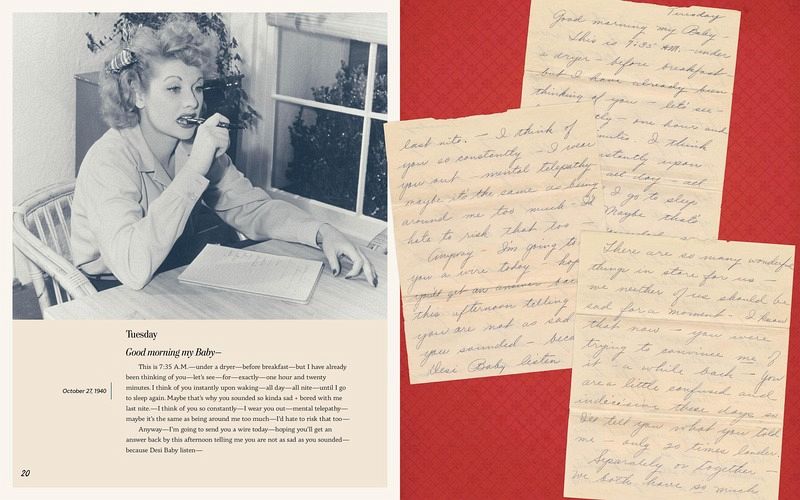 Tuesday
Good morning my Baby—
This is 7:35 A.M.—under a dryer—before breakfast—but I have already
been thinking of you—let's see—for—exactly—one hour and twenty
minutes. I think of you instantly upon waking—all day—all nite—until I go
to sleep again. Maybe that's why you sounded so kinda sad + bored with me
last nite.—I think of you so constantly—I wear you out—mental telepathy—
maybe it's the same as being around me too much—I'd hate to risk that too—
Anyway—I'm going to send you a wire today—hoping you'll get an
answer back by this afternoon telling me you are not as sad as you sounded—
because Desi Baby listen—
October 27, 1940
20
Tuesday
Good morning my Baby—
This is 7:35 A.M.—under
a dryer—before breakfast—
but I have already been
thinking of you—let's see—
one hour and
I think
instantly upon
all day—all
I go to sleep
Maybe that's
last nite.—I think of
you so constantly—I wear
you out—mental telepathy
maybe its the same as being
around me too much—I'd
hate to risk that too—
Anyway—I'm going to
you a wire today—hop
you'll get an answer back
this afternoon telling
you are not as sad
you sounded—beca
Desi Baby listen
There are so many wonderful
things in store for us—
we neither of us should be
sad for a moment. I know
that now—you were
trying to convince me of
it a while back—you
are a little confused and
indecisive these days so
I'll tell you what you told
me—only 20 times louder.
Separately or together—
we both have so much